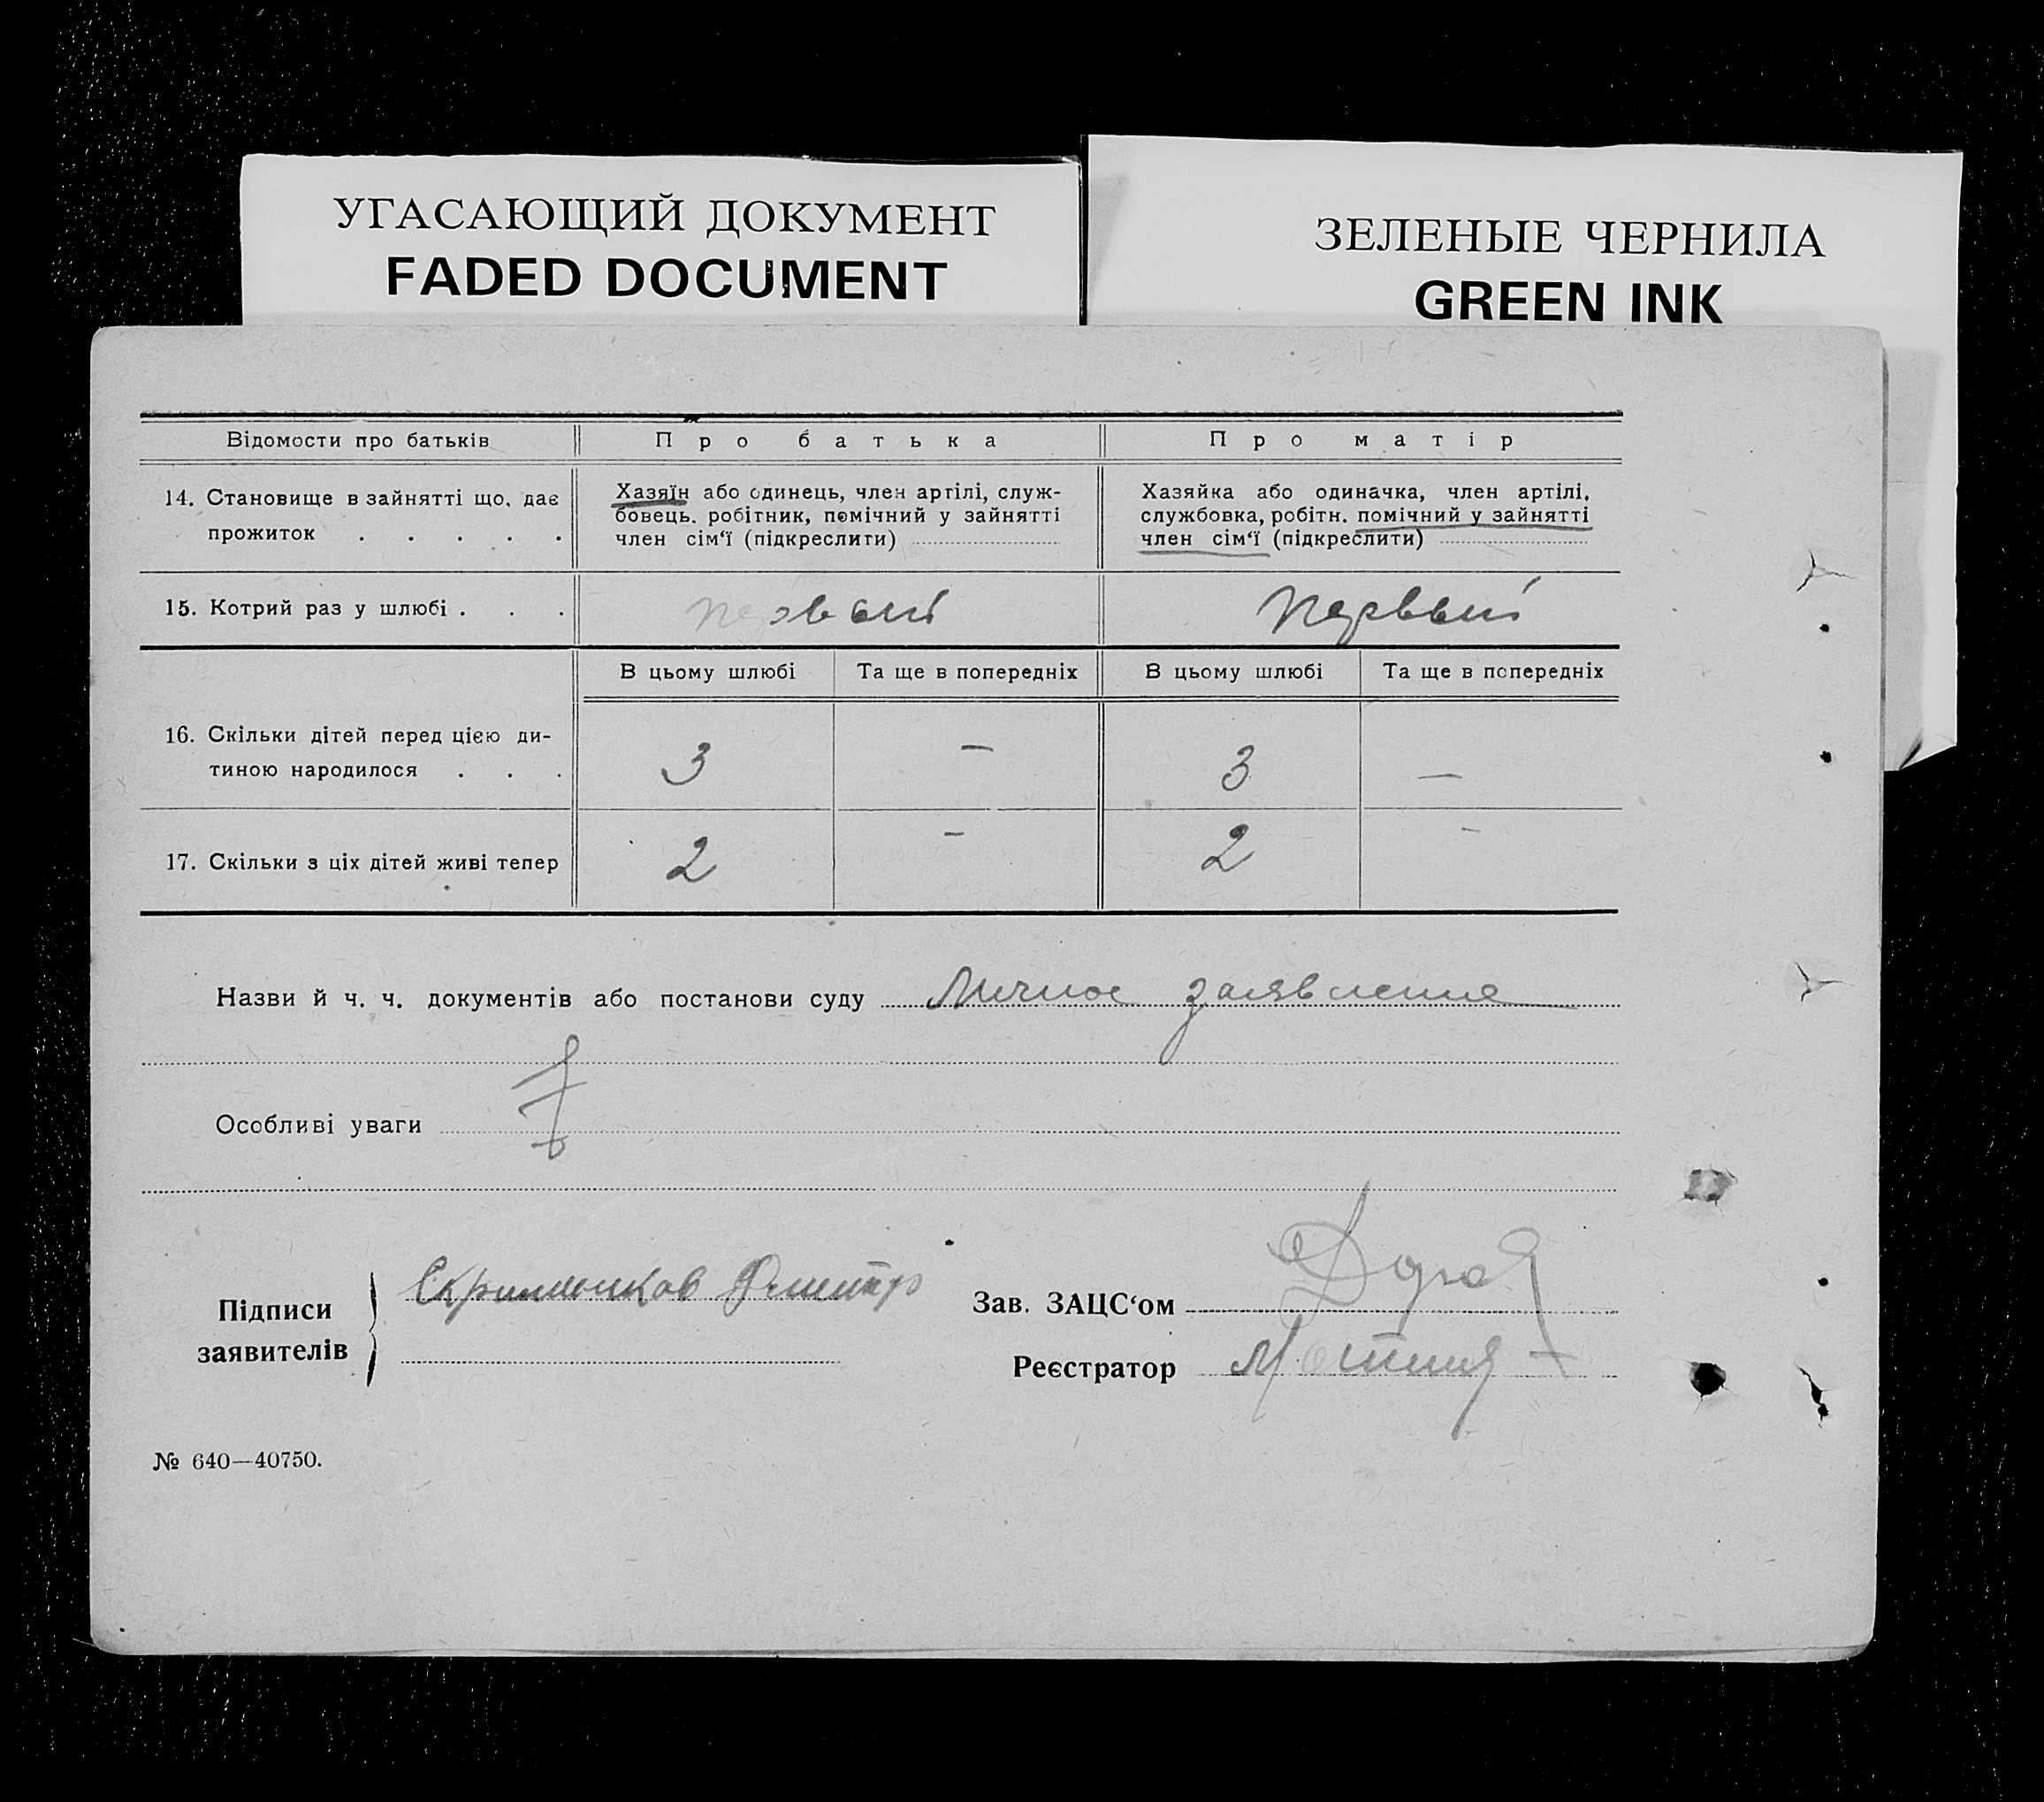 УГАСАЮЩИЙ ДОКУМЕНТ
FADED DOCUMENT
ЗЕЛЕНЫЕ ЧЕРНИЛА
GREEN INK
Відомости про батьків
Про батька
Про матір
14. Становище в зайнятті що, дає
прожиток . . . . .
Хазяїн або одинець, член артілі, служ-
бовець. робітник, помічний у зайнятті
член сім‘ї (підкреслити)
Хазяйка або одиначка, член артілі,
службовка, робітн. помічний у зайнятті
член сім‘ї (підкреслити)
15. Котрий раз у шлюбі . . .
первый
первый
В цьому шлюбі
Та ще в попередніх
В цьому шлюбі
Та ще в попередніх
16. Скільки дітей перед цією ди-
тиною народилося . . .
3
—
3
—
17. Скільки з ціх дітей живі тепер
2
–
2
–
Назви й ч. ч. документів або постанови суду Личное заявление
Особливі уваги
Підписи
заявителів
Зав. ЗАЦС‘ом
Реєстратор
№ 640—40750.